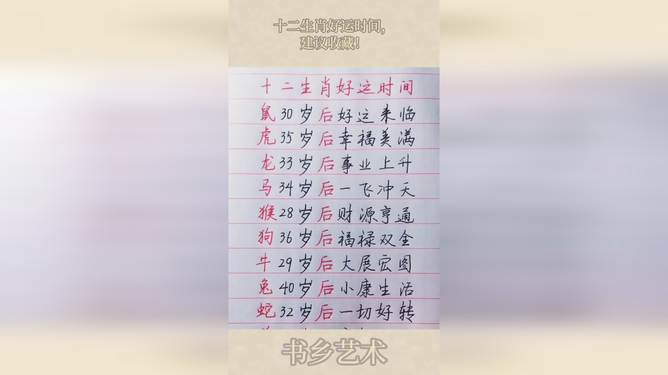 十二生肖好运时间,
建议收藏!
十二生肖好运时间
鼠30岁后好运来临
虎35岁后幸福美满
龙33岁后事业上升
马34岁后一飞冲天
猴28岁后财源亨通
狗36岁后福禄双全
牛29岁后大展宏图
兔40岁后小康生活
蛇32岁后一切好转
书乡艺术